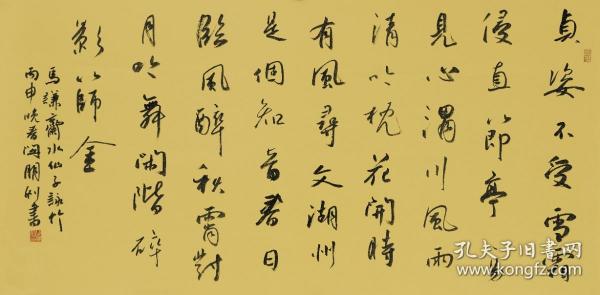 貞姿不受雪霜
侵直節亭亭易
見心渭川風雨
清吟枕花開時
有風尋文湖州
是個知音春日
臨風醉秋霄對
月吟舞閒階碎
影篩金
馬謙齋水仙子詠竹
丙申晚春 書
孔夫子旧书网
www.kongfz.com